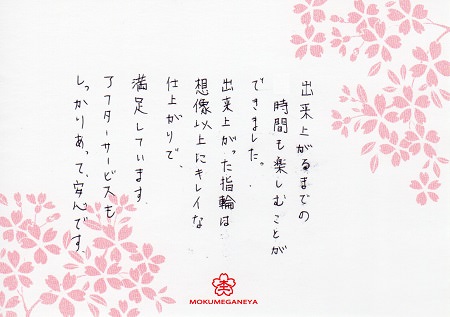 出来上がるまでの
時間も楽しむことが
できました。
出来上がった指輪は
想像以上にキレイな
仕上がりで、
満足しています。
アフターサービスも
しっかりあって、安心です。
MOKUMEGANEYA